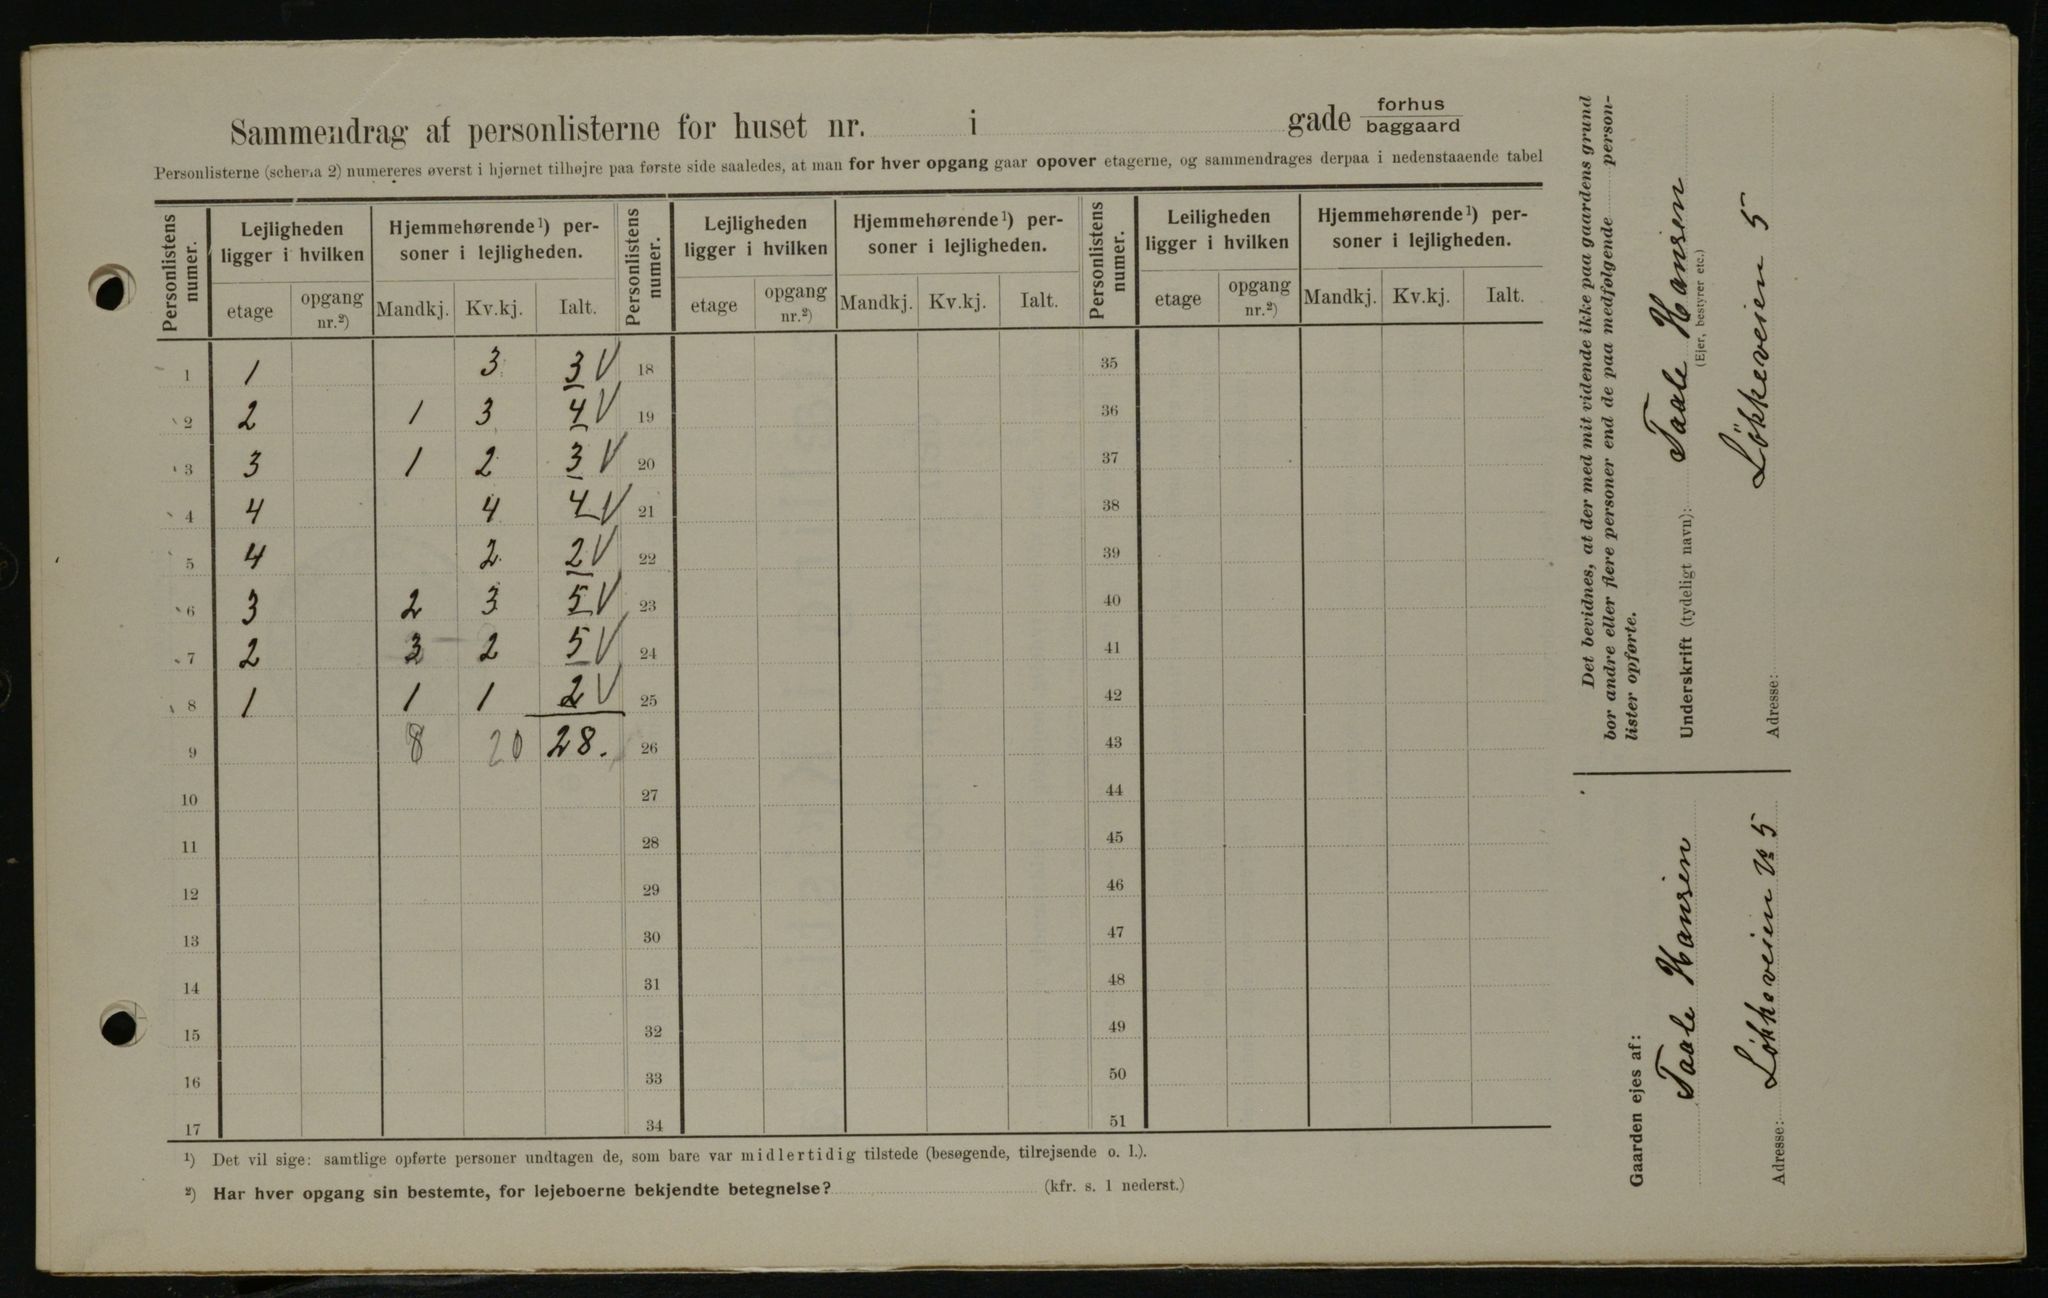 Sammendrag af personlisterne for huset nr. i gade forhus baggaard
Personlisterne (schema 2) numereres øverst i hjørnet tilhøjre paa første side saaledes, at man for hver opgang gaar opover etagerne, og sammendrages derpaa i nedenstaaende tabel
Personlistens numer. Lejligheden ligger i hvilken Hjemmehørende¹) personer i lejligheden. Personlistens numer. Lejligheden ligger i hvilken Hjemmehørende¹) personer i lejligheden. Personlistens numer. Leiligheden ligger i hvilken Hjemmehørende¹) personer i lejligheden.
etage opgang nr.²) Mandkj. Kv.kj. Ialt. etage opgang nr.²) Mandkj. Kv.kj. Ialt. etage opgang nr.²) Mandkj. Kv.kj. Ialt.
1 1 3 3 V 18 35
2 2 1 3 4 V 19 36
3 3 1 2 3 V 20 37
4 4 4 4 V 21 38
5 4 2 2 V 22 39
6 3 2 3 5 V 23 40
7 2 3 2 5 V 24 41
8 1 1 1 2 V 25 42
9 8 20 28. 26 43
10 27 44
11 28 45
12 29 46
13 30 47
14 31 48
15 32 49
16 33 50
17 34 51
¹) Det vil sige: samtlige opførte personer undtagen de, som bare var midlertidig tilstede (besøgende, tilrejsende o. l.).
²) Har hver opgang sin bestemte, for lejeboerne bekjendte betegnelse? (kfr. s. 1 nederst.)
Det bevidnes, at der med mit vidende ikke paa gaardens grund
bor andre eller flere personer end de paa medfølgende person-
lister opførte.
Underskrift (tydeligt navn): Taale Hansen
(Ejer, bestyrer etc.)
Adresse: Løkkeveien 5
Gaarden ejes af:
Taale Hansen
Adresse: Løkkeveien № 5